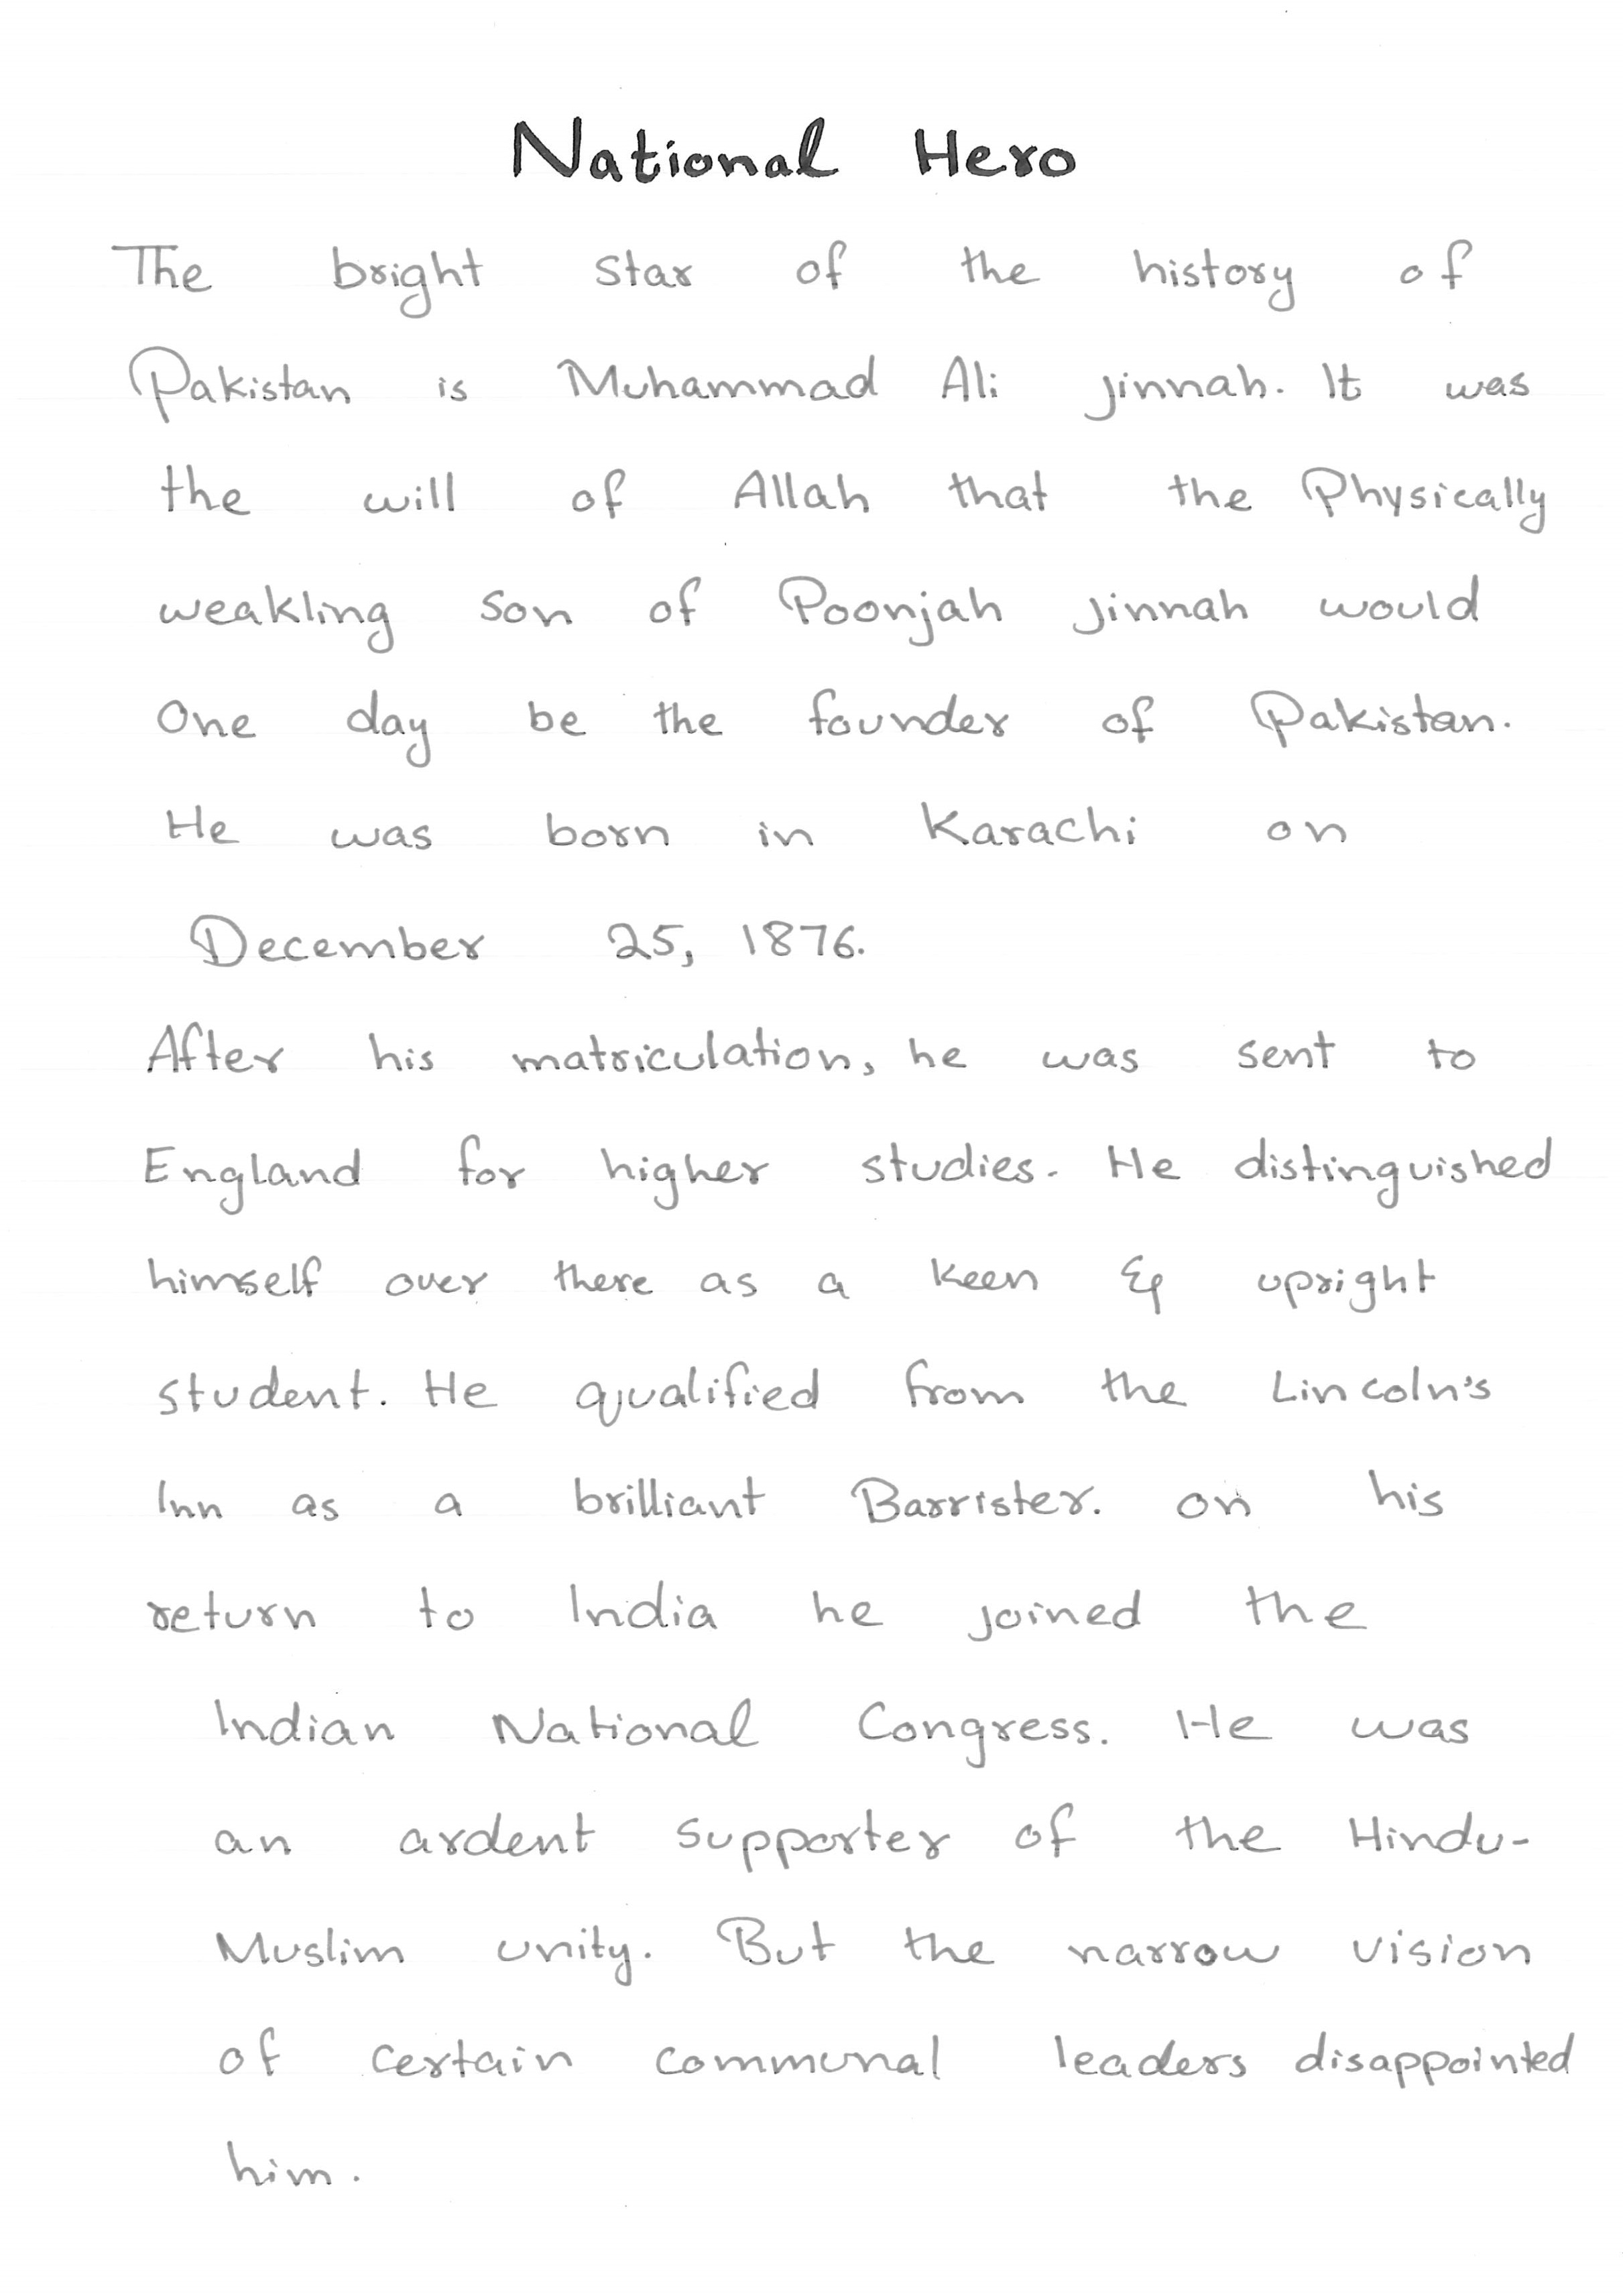 National Hero
The bright star of the history of
Pakistan is Muhammad Ali jinnah. It was
the will of Allah that the Physically
weakling son of Poonjah jinnah would
One day be the founder of Pakistan.
He was born in Karachi on
December 25, 1876.
After his matriculation, he was sent to
England for higher studies. He distinguished
himself over there as a keen & upright
student. He qualified from the Lincoln's
Inn as a brilliant Barrister. on his
return to India he joined the
Indian National Congress. He was
an ardent supporter of the Hindu-
Muslim unity. But the narrow vision
of certain communal leaders disappointed
him.